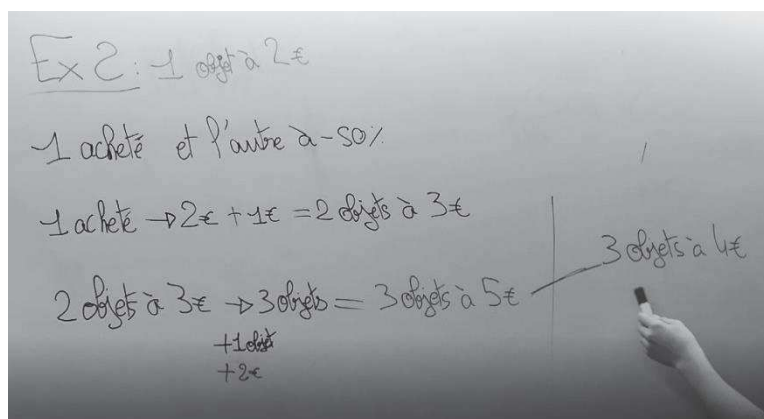 Ex 2 : 1 objet à 2€
1 acheté et l'autre à -50%
1 acheté → 2€ + 1€ = 2 objets à 3€
2 objets à 3€ → 3 objets = 3 objets à 5€
+1 objet
+2€
3 objets à 4€